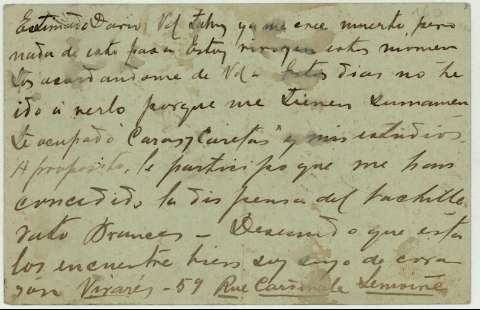 Estimado Dario, Vd. talvez ya me cree muerto, pero
nada de esto pasa. Estoy vivo y en estos momen
tos acordandome de Vd - Estos dias no he
ido á verlo porque me tienen sumamen
te ocupado "Caras y Caretas" y mis estudios.
A proposito, le participo que me han
concedido la dispensa del bachille
rato frances - Deseando que esta
los encuentre bien soy suyo de cora
zón Vivarés - 59 Rue Cardinale Lemoine